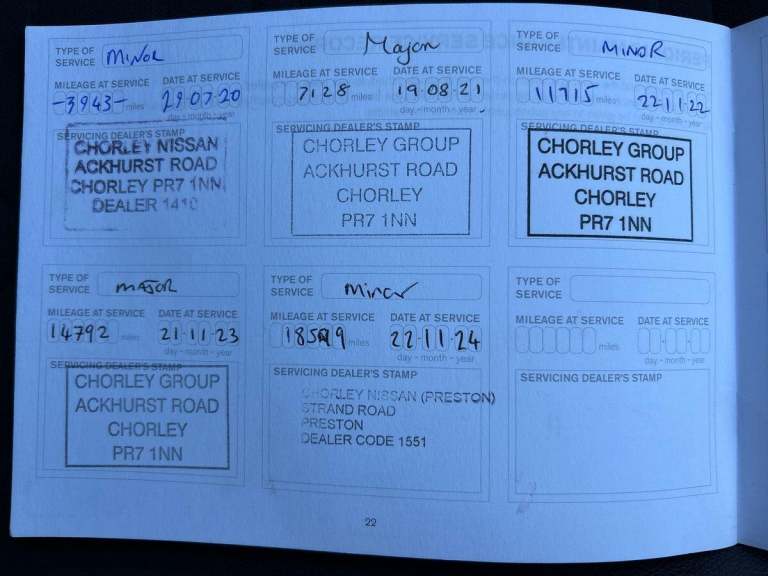 TYPE OF
SERVICE
MINOR
MILEAGE AT SERVICE
DATE AT SERVICE
-3943- miles
29.07.20
day - month - year
SERVICING DEALER'S STAMP
CHORLEY NISSAN
ACKHURST ROAD
CHORLEY PR7 1NN
DEALER 1410
TYPE OF
SERVICE
Major
MILEAGE AT SERVICE
DATE AT SERVICE
7128 miles
19.08.21
day - month - year
SERVICING DEALER'S STAMP
CHORLEY GROUP
ACKHURST ROAD
CHORLEY
PR7 1NN
TYPE OF
SERVICE
MINOR
MILEAGE AT SERVICE
DATE AT SERVICE
11715 miles
22.11.22
day - month - year
SERVICING DEALER'S STAMP
CHORLEY GROUP
ACKHURST ROAD
CHORLEY
PR7 1NN
TYPE OF
SERVICE
MAJOR
MILEAGE AT SERVICE
DATE AT SERVICE
14792 miles
21.11.23
day - month - year
SERVICING DEALER'S STAMP
CHORLEY GROUP
ACKHURST ROAD
CHORLEY
PR7 1NN
TYPE OF
SERVICE
Minor
MILEAGE AT SERVICE
DATE AT SERVICE
miles
22.11.24
day - month - year
SERVICING DEALER'S STAMP
CHORLEY NISSAN (PRESTON)
STRAND ROAD
PRESTON
DEALER CODE 1551
TYPE OF
SERVICE
MILEAGE AT SERVICE
DATE AT SERVICE
miles
day - month - year
SERVICING DEALER'S STAMP
22